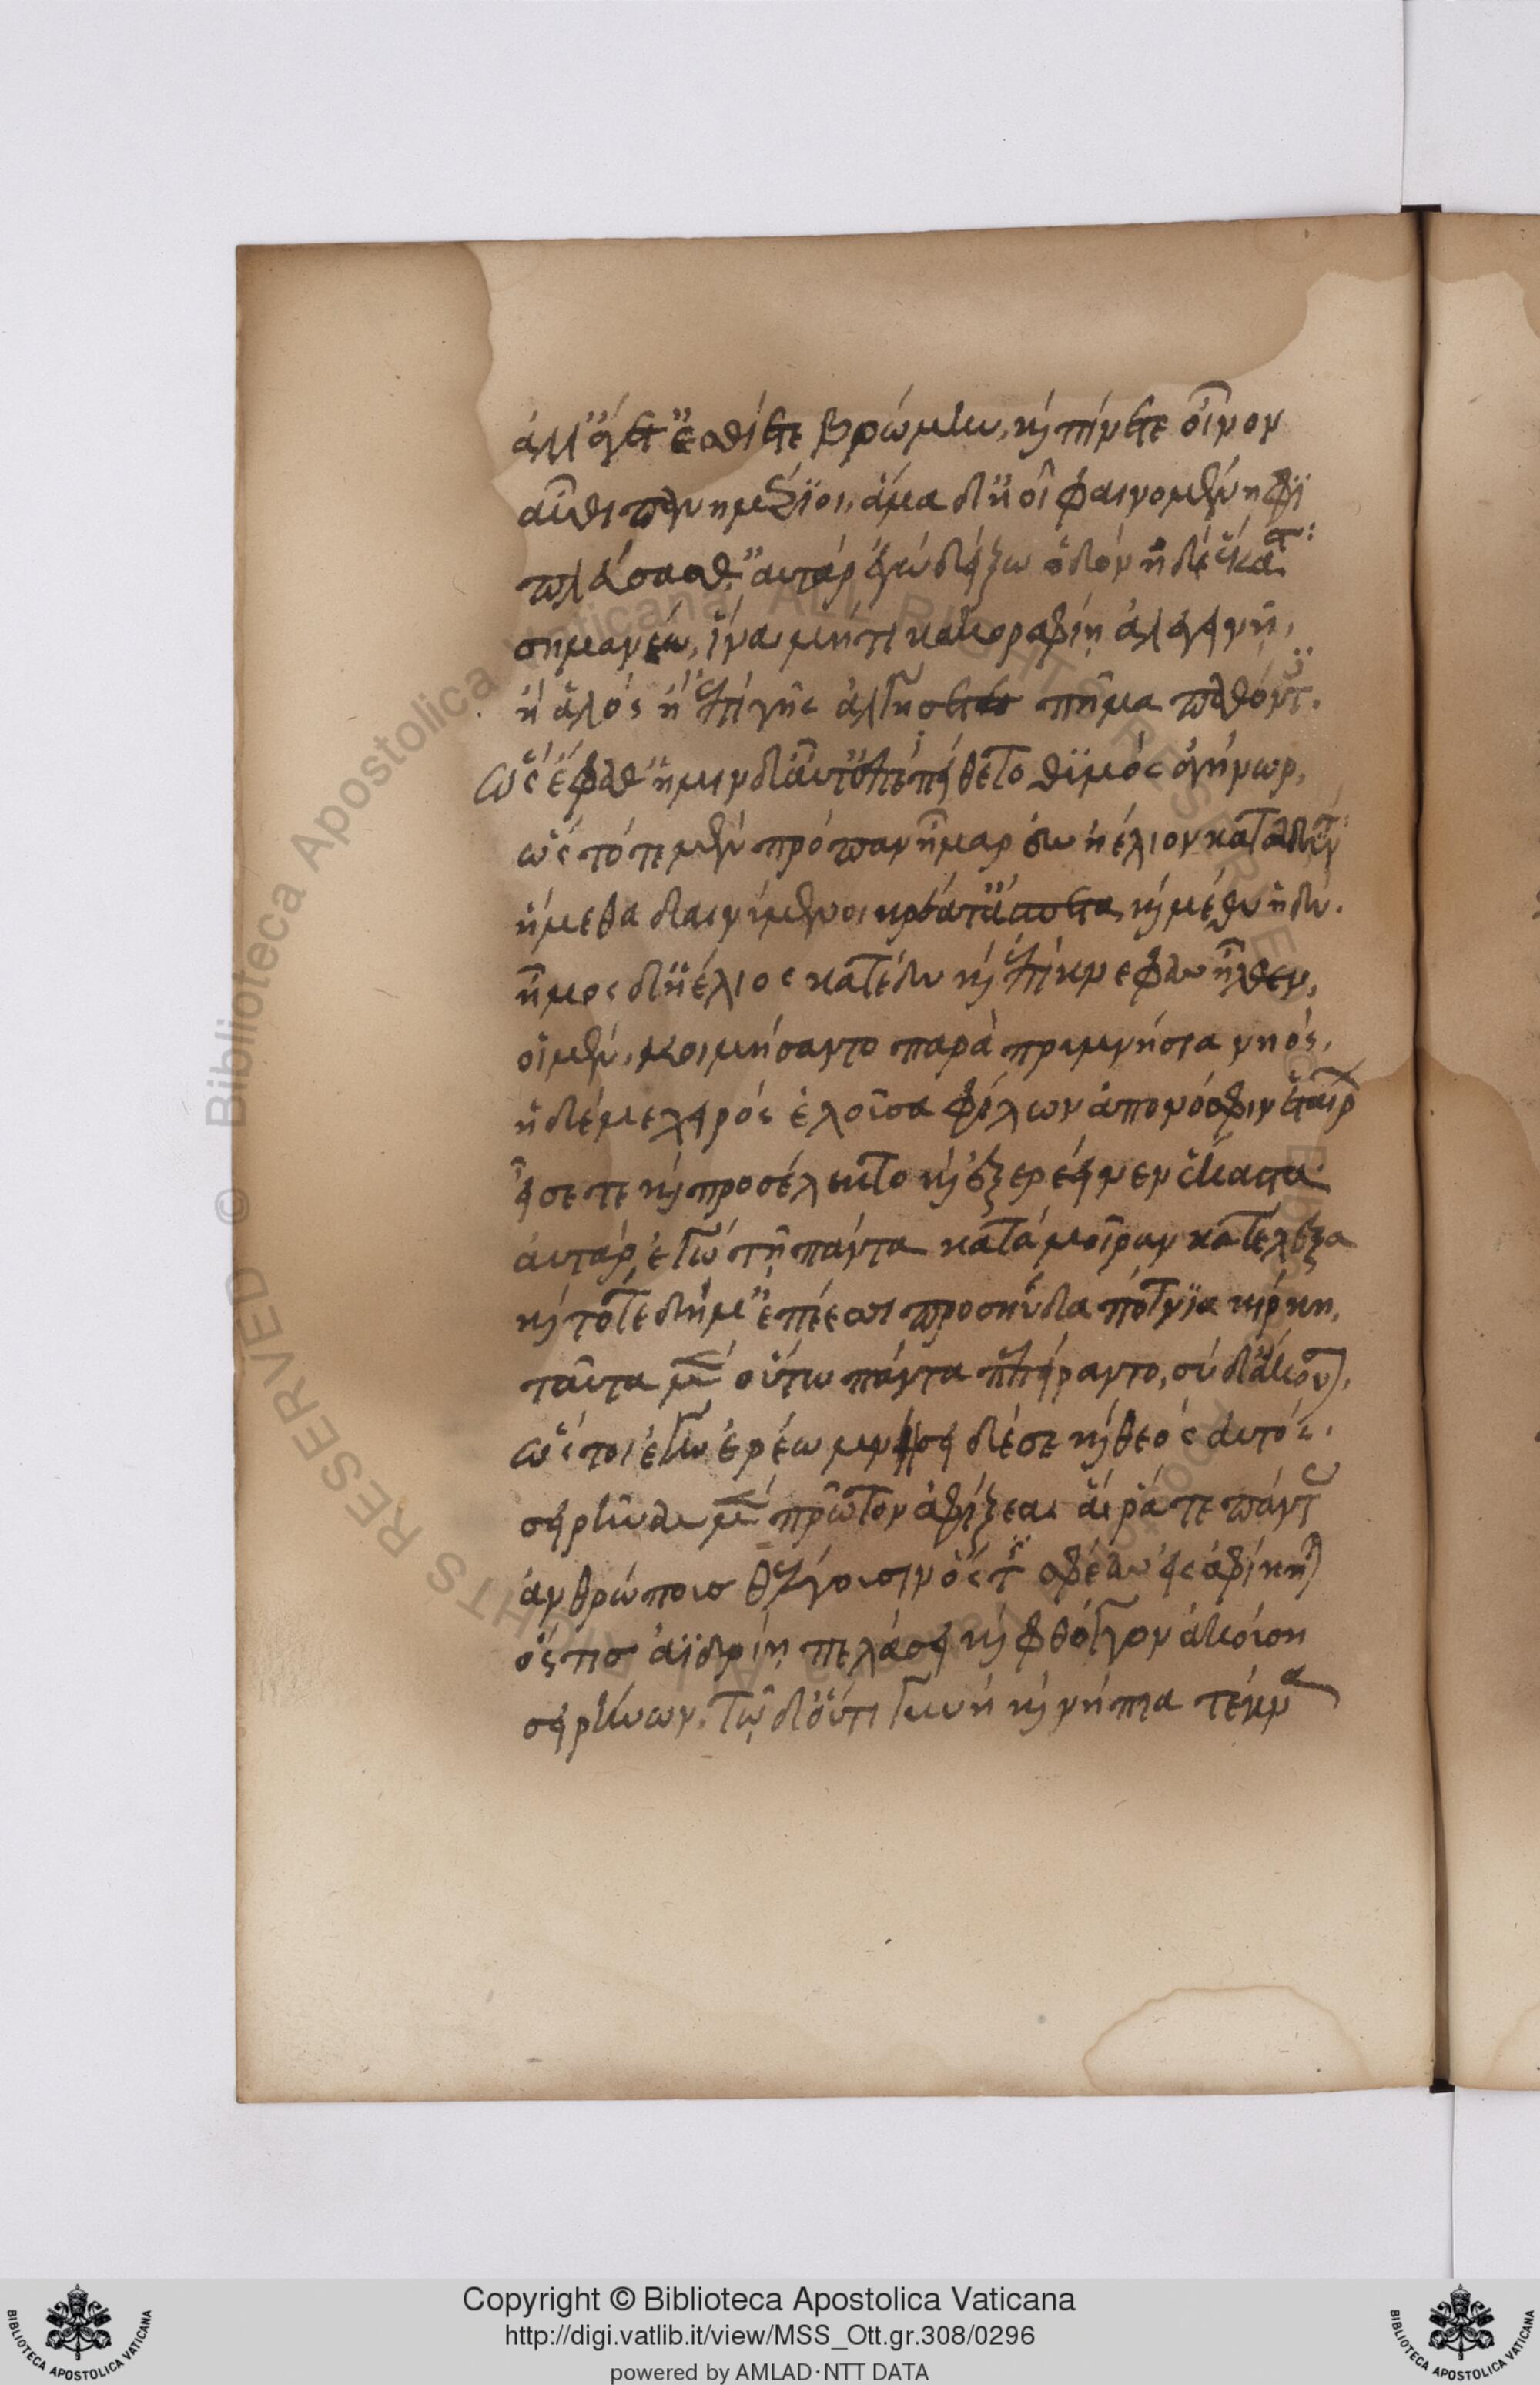 ἀλλ' ἄγετ' ἐσθίετε βρώμην, καὶ πίνετε οἶνον
αὖθι πανημέριοι, ἅμα δ' ἠοῖ φαινομένηφι
πλεύσεσθ' αὐτὰρ ἐγὼ δείξω ὁδὸν ἠδὲ ἕκαστα:
σημανέω, ἵνα μήτι κακορραφίη ἀλεγεινῆ,
ἢ ἁλὸς ἢ ἐπὶ γῆς ἀλγήσετε πῆμα παθόντες.
ὣς ἔφαθ' ἡμῖν δ' αὖτ' ἐπεπείθετο θυμὸς ἀγήνωρ,
ὣς τότε μὲν πρόπαν ἦμαρ ἐς ἠέλιον καταδύντα
ἥμεθα δαινύμενοι κρέατ' ἄσπετα, καὶ μέθυ ἡδύ.
ἦμος δ' ἠέλιος κατέδυ καὶ ἐπὶ κνέφας ἦλθεν,
οἱ μὲν κοιμήσαντο παρὰ πρυμνήσια νηός,
ἡ δ' ἐμὲ χειρὸς ἑλοῦσα φίλων ἀπονόσφιν ἑταίρων
εἷσέ τε καὶ προσέλεκτο καὶ ἐξερέεινεν ἕκαστα
αὐτὰρ ἐγὼ τῇ πάντα κατὰ μοῖραν κατέλεξα
καὶ τότε δή μ' ἐπέεσσι προσηύδα πότνια κίρκη,
ταῦτα μὲν οὕτω πάντα πεπείρανται, σὺ δ' ἄκουσον,
ὥς τοι ἐγὼν ἐρέω μνήσει δέ σε καὶ θεὸς αὐτός.
σειρῆνας μὲν πρῶτον ἀφίξεαι αἵ ῥά τε πάντας
ἀνθρώπους θέλγουσιν ὅς τις σφέας εἰσαφίκηται
ὅστις ἀϊδρίῃ πελάσει καὶ φθόγγον ἀκούσῃ
σειρήνων, τῷ δ' οὔτι γυνὴ καὶ νήπια τέκνα
Copyright © Biblioteca Apostolica Vaticana
http://digi.vatlib.it/view/MSS_Ott.gr.308/0296
powered by AMLAD·NTT DATA